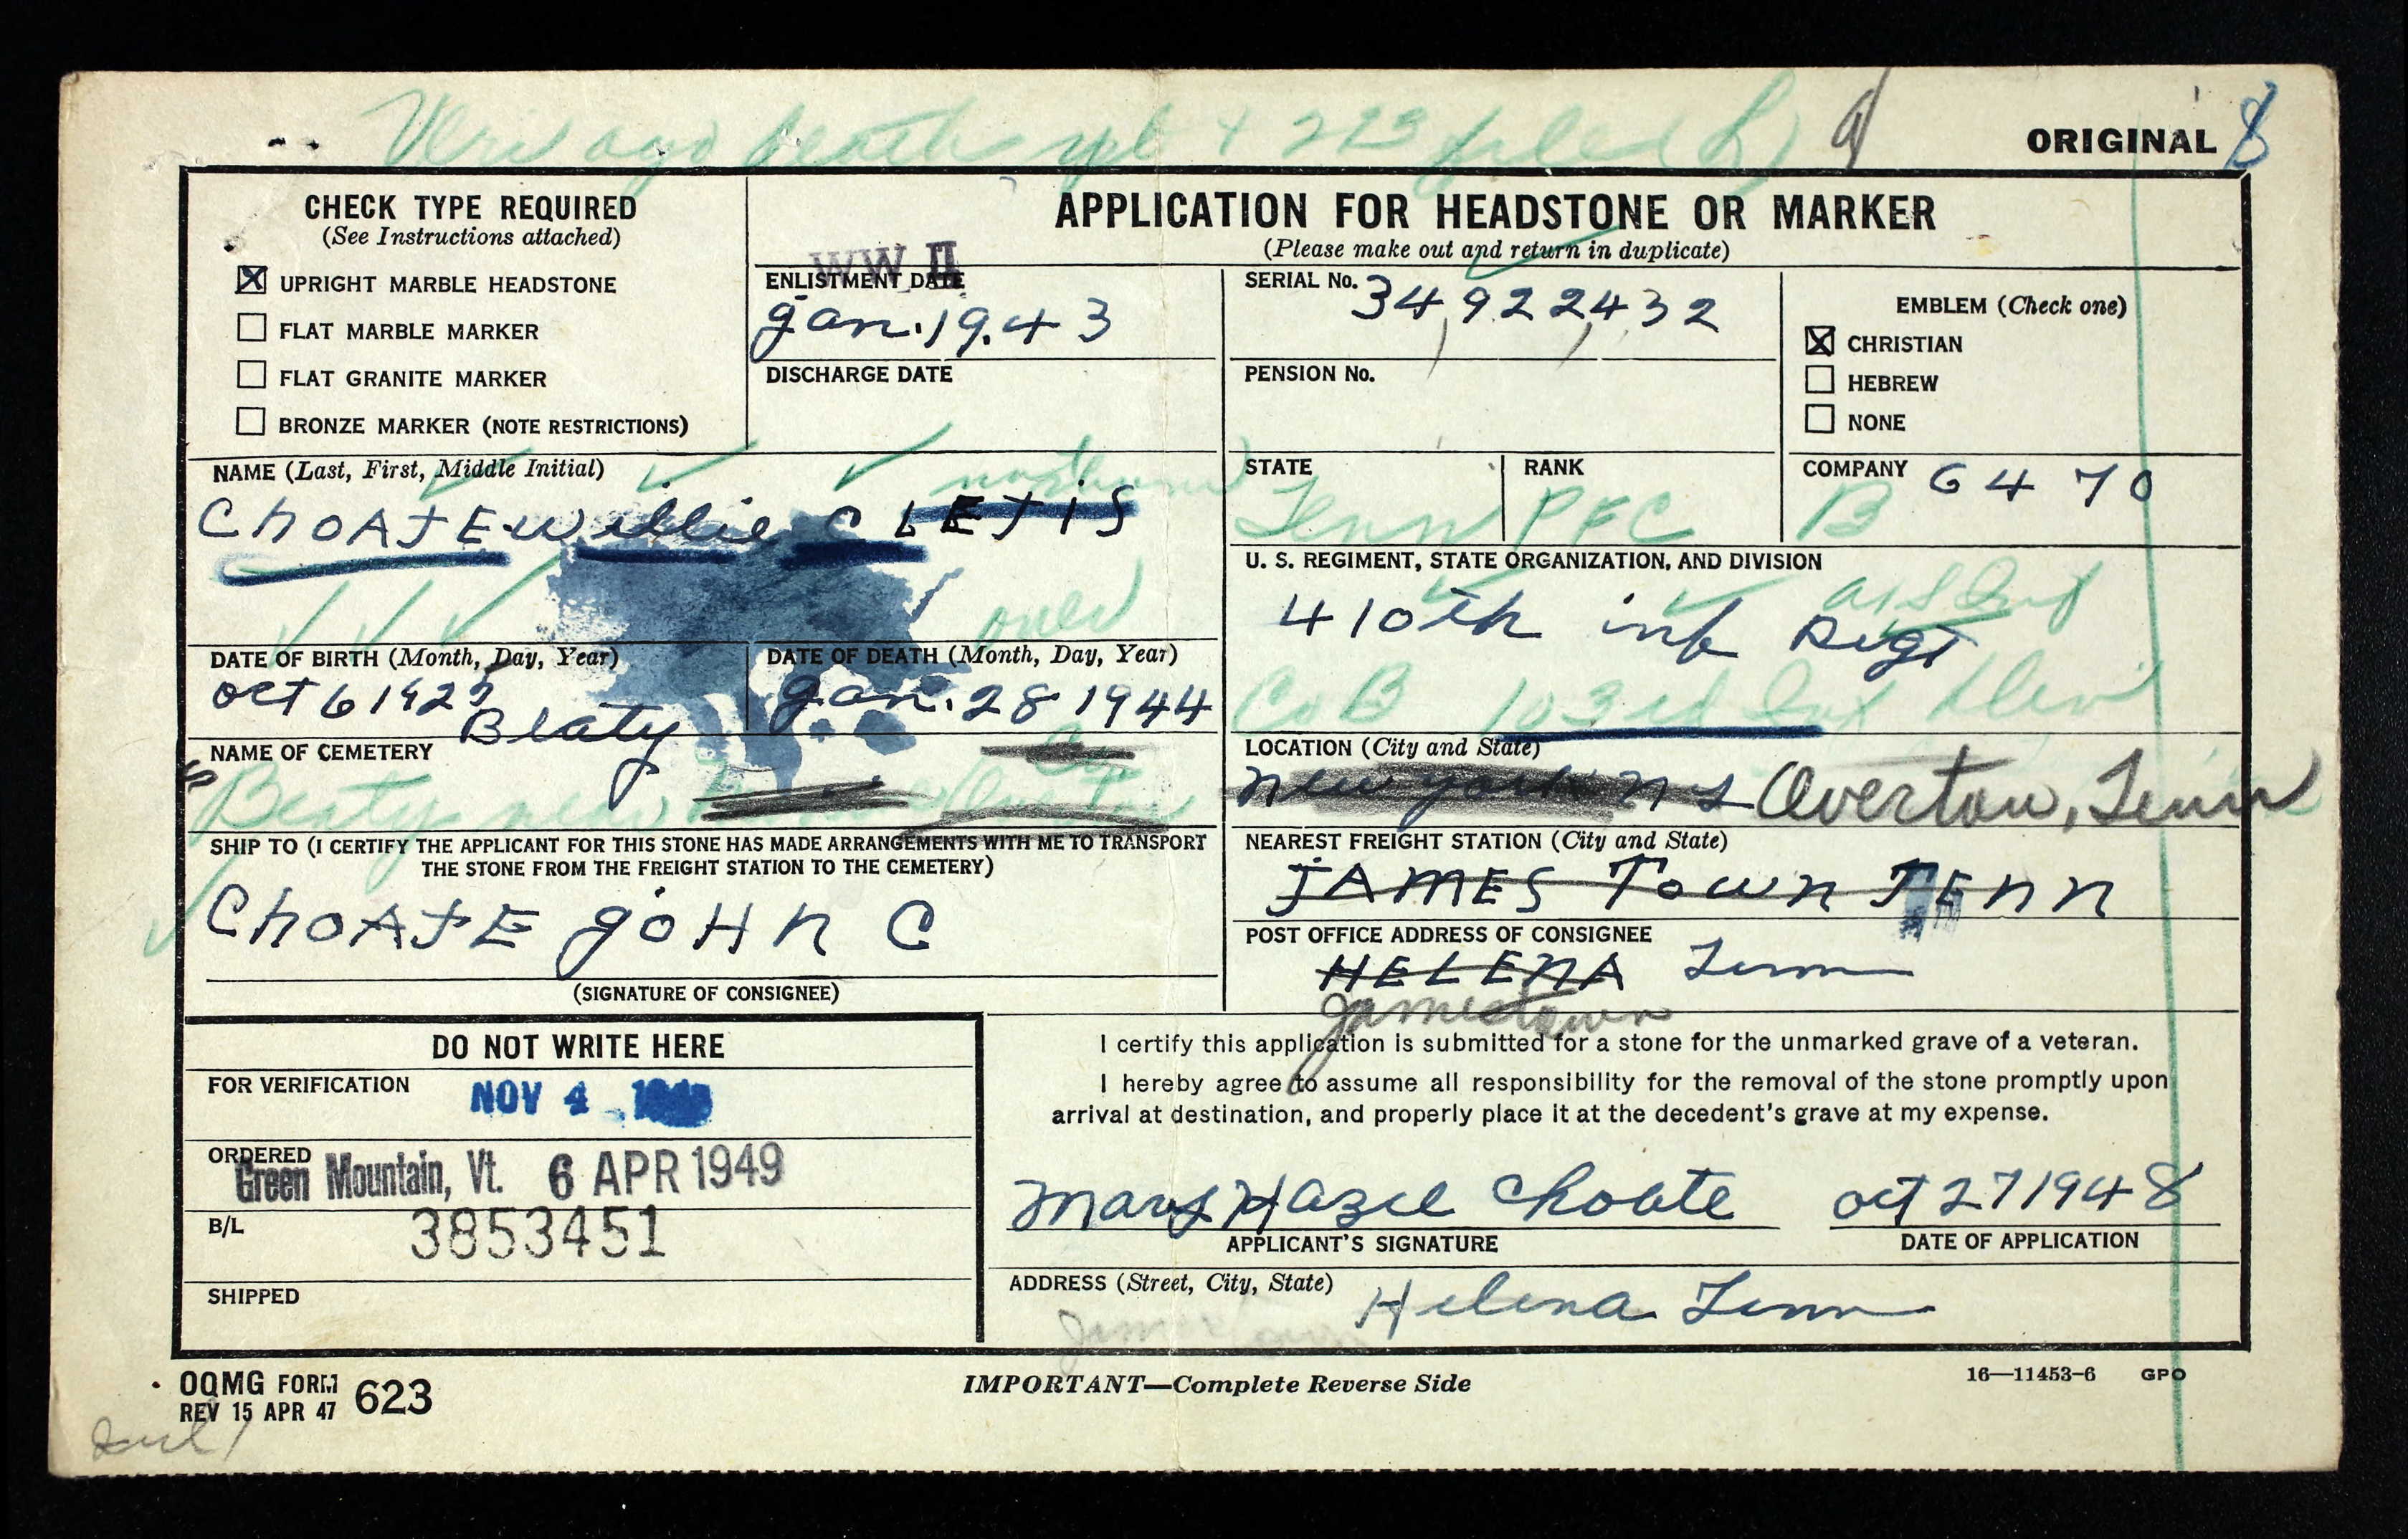 ORIGINAL 8
CHECK TYPE REQUIRED
(See Instructions attached)
☒ UPRIGHT MARBLE HEADSTONE
☐ FLAT MARBLE MARKER
☐ FLAT GRANITE MARKER
☐ BRONZE MARKER (NOTE RESTRICTIONS)
APPLICATION FOR HEADSTONE OR MARKER
(Please make out and return in duplicate)
WW II
ENLISTMENT DATE
Jan. 19.43
DISCHARGE DATE
SERIAL No. 34,922,432
PENSION No.
EMBLEM (Check one)
☒ CHRISTIAN
☐ HEBREW
☐ NONE
NAME (Last, First, Middle Initial)
CHOATE Willie CLETIS
STATE
Tenn
RANK
PFC
COMPANY 6470
B
U. S. REGIMENT, STATE ORGANIZATION, AND DIVISION
410th inf Regt
Co B 103rd Inf Div
DATE OF BIRTH (Month, Day, Year)
oct 6 1925
over
DATE OF DEATH (Month, Day, Year)
Jan. 28 1944
NAME OF CEMETERY
Beaty
Beaty near
LOCATION (City and State)
new york n y Overton, Tenn
SHIP TO (I CERTIFY THE APPLICANT FOR THIS STONE HAS MADE ARRANGEMENTS WITH ME TO TRANSPORT
THE STONE FROM THE FREIGHT STATION TO THE CEMETERY)
CHOATE JOHN C
(SIGNATURE OF CONSIGNEE)
NEAREST FREIGHT STATION (City and State)
JAMES Town TENN
POST OFFICE ADDRESS OF CONSIGNEE
HELENA Tenn
Jamestown
DO NOT WRITE HERE
FOR VERIFICATION
NOV 4
ORDERED
Green Mountain, Vt. 6 APR 1949
B/L
3853451
SHIPPED
I certify this application is submitted for a stone for the unmarked grave of a veteran.
I hereby agree to assume all responsibility for the removal of the stone promptly upon
arrival at destination, and properly place it at the decedent's grave at my expense.
Mary Hazel Choate oct 27 1948
APPLICANT'S SIGNATURE
DATE OF APPLICATION
ADDRESS (Street, City, State)
Helena Tenn
Jamestown
OQMG FORM 623
REV 15 APR 47
IMPORTANT—Complete Reverse Side
16—11453-6 GPO